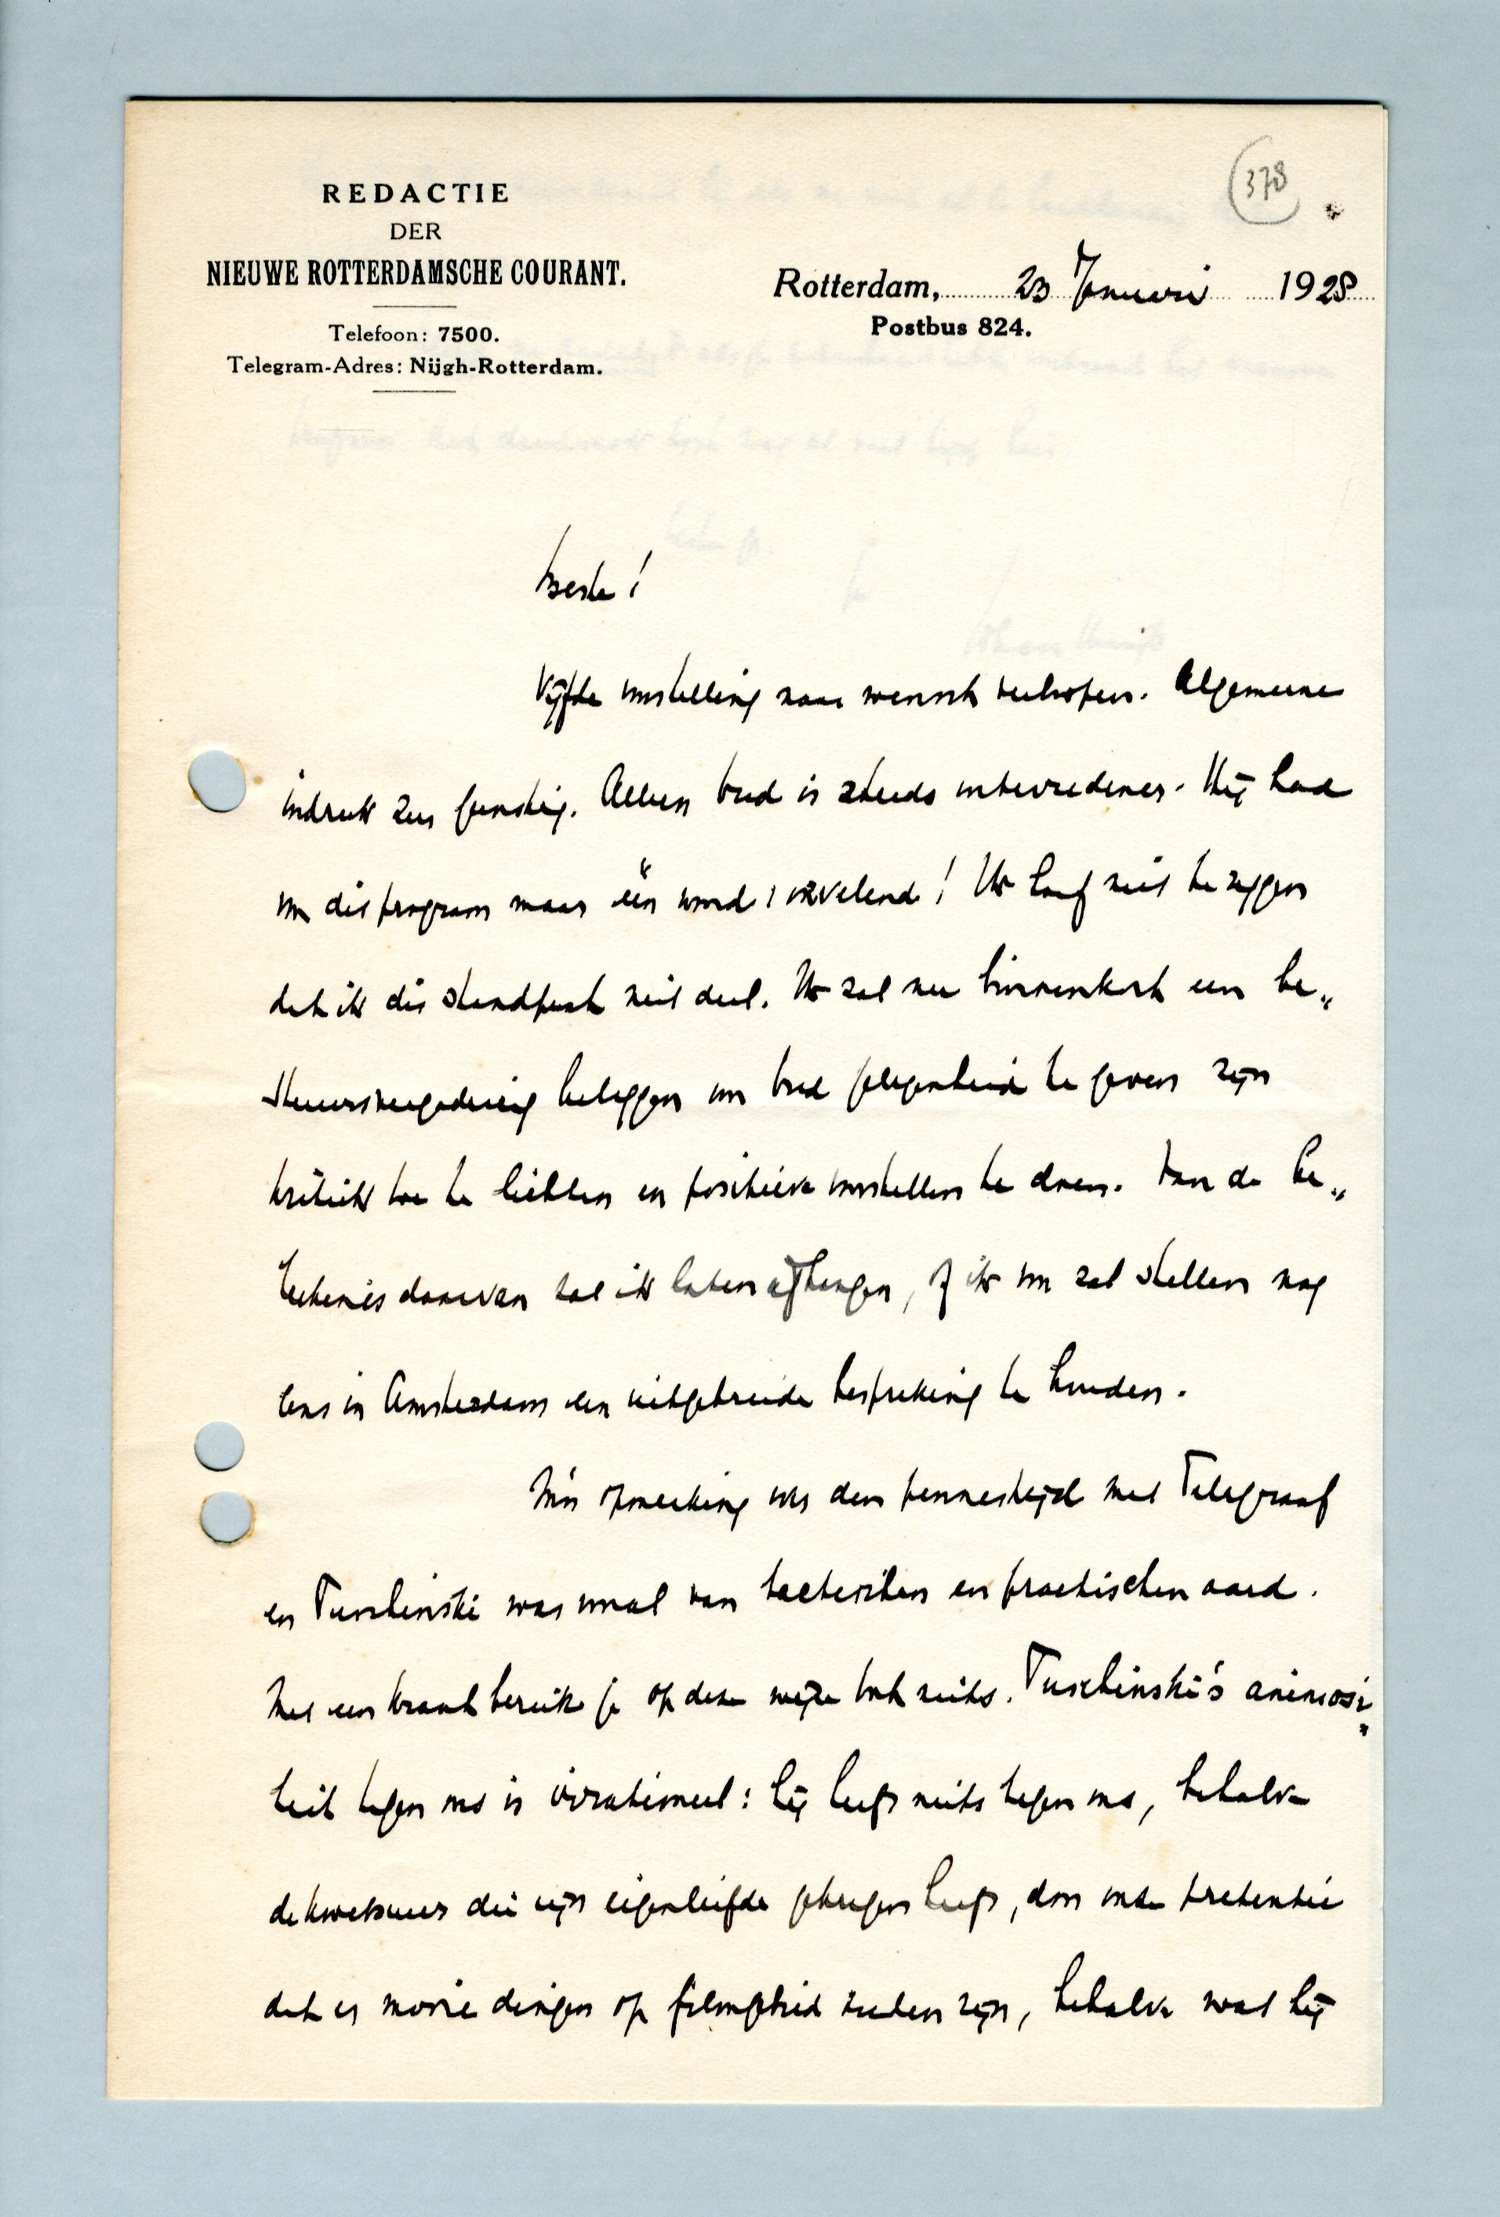 378
REDACTIE
DER
NIEUWE ROTTERDAMSCHE COURANT.
Telefoon: 7500.
Telegram-Adres: Nijgh-Rotterdam.
Rotterdam, 23 Januari 1928
Postbus 824.
Beste!
Vijfde voorstelling naar wensch verloopen. Algemeene
indruk zeer gunstig. Alleen is steeds ontevredener. Hij had
voor dit program maar één woord: vervelend! Ik hoef niet te zeggen
dat ik dit standpunt niet deel. Ik zal nu binnenkort een be„
stuursvergadering beleggen om gelegenheid te geven zijn
kritiek toe te lichten en positieve voorstellen te doen. Van de be„
teekenis daarvan zal ik laten afhangen, of ik voor zal stellen nog
eens in Amsterdam een uitgebreide bespreking te houden.
Mijn opmerking over den pennestrijd met Telegraaf
en Tuschinski was vooral van tactischen en practischen aard.
Met een krant bereik je op deze wijze toch niets. Tuschinski's animosi„
teit tegen ons is irrationeel: hij heeft niets tegen ons, behalve
de kwetsuur die zijn eigenliefde gekregen heeft, door onze pretentie
dat er mooie dingen op filmgebied zouden zijn, behalve wat hij